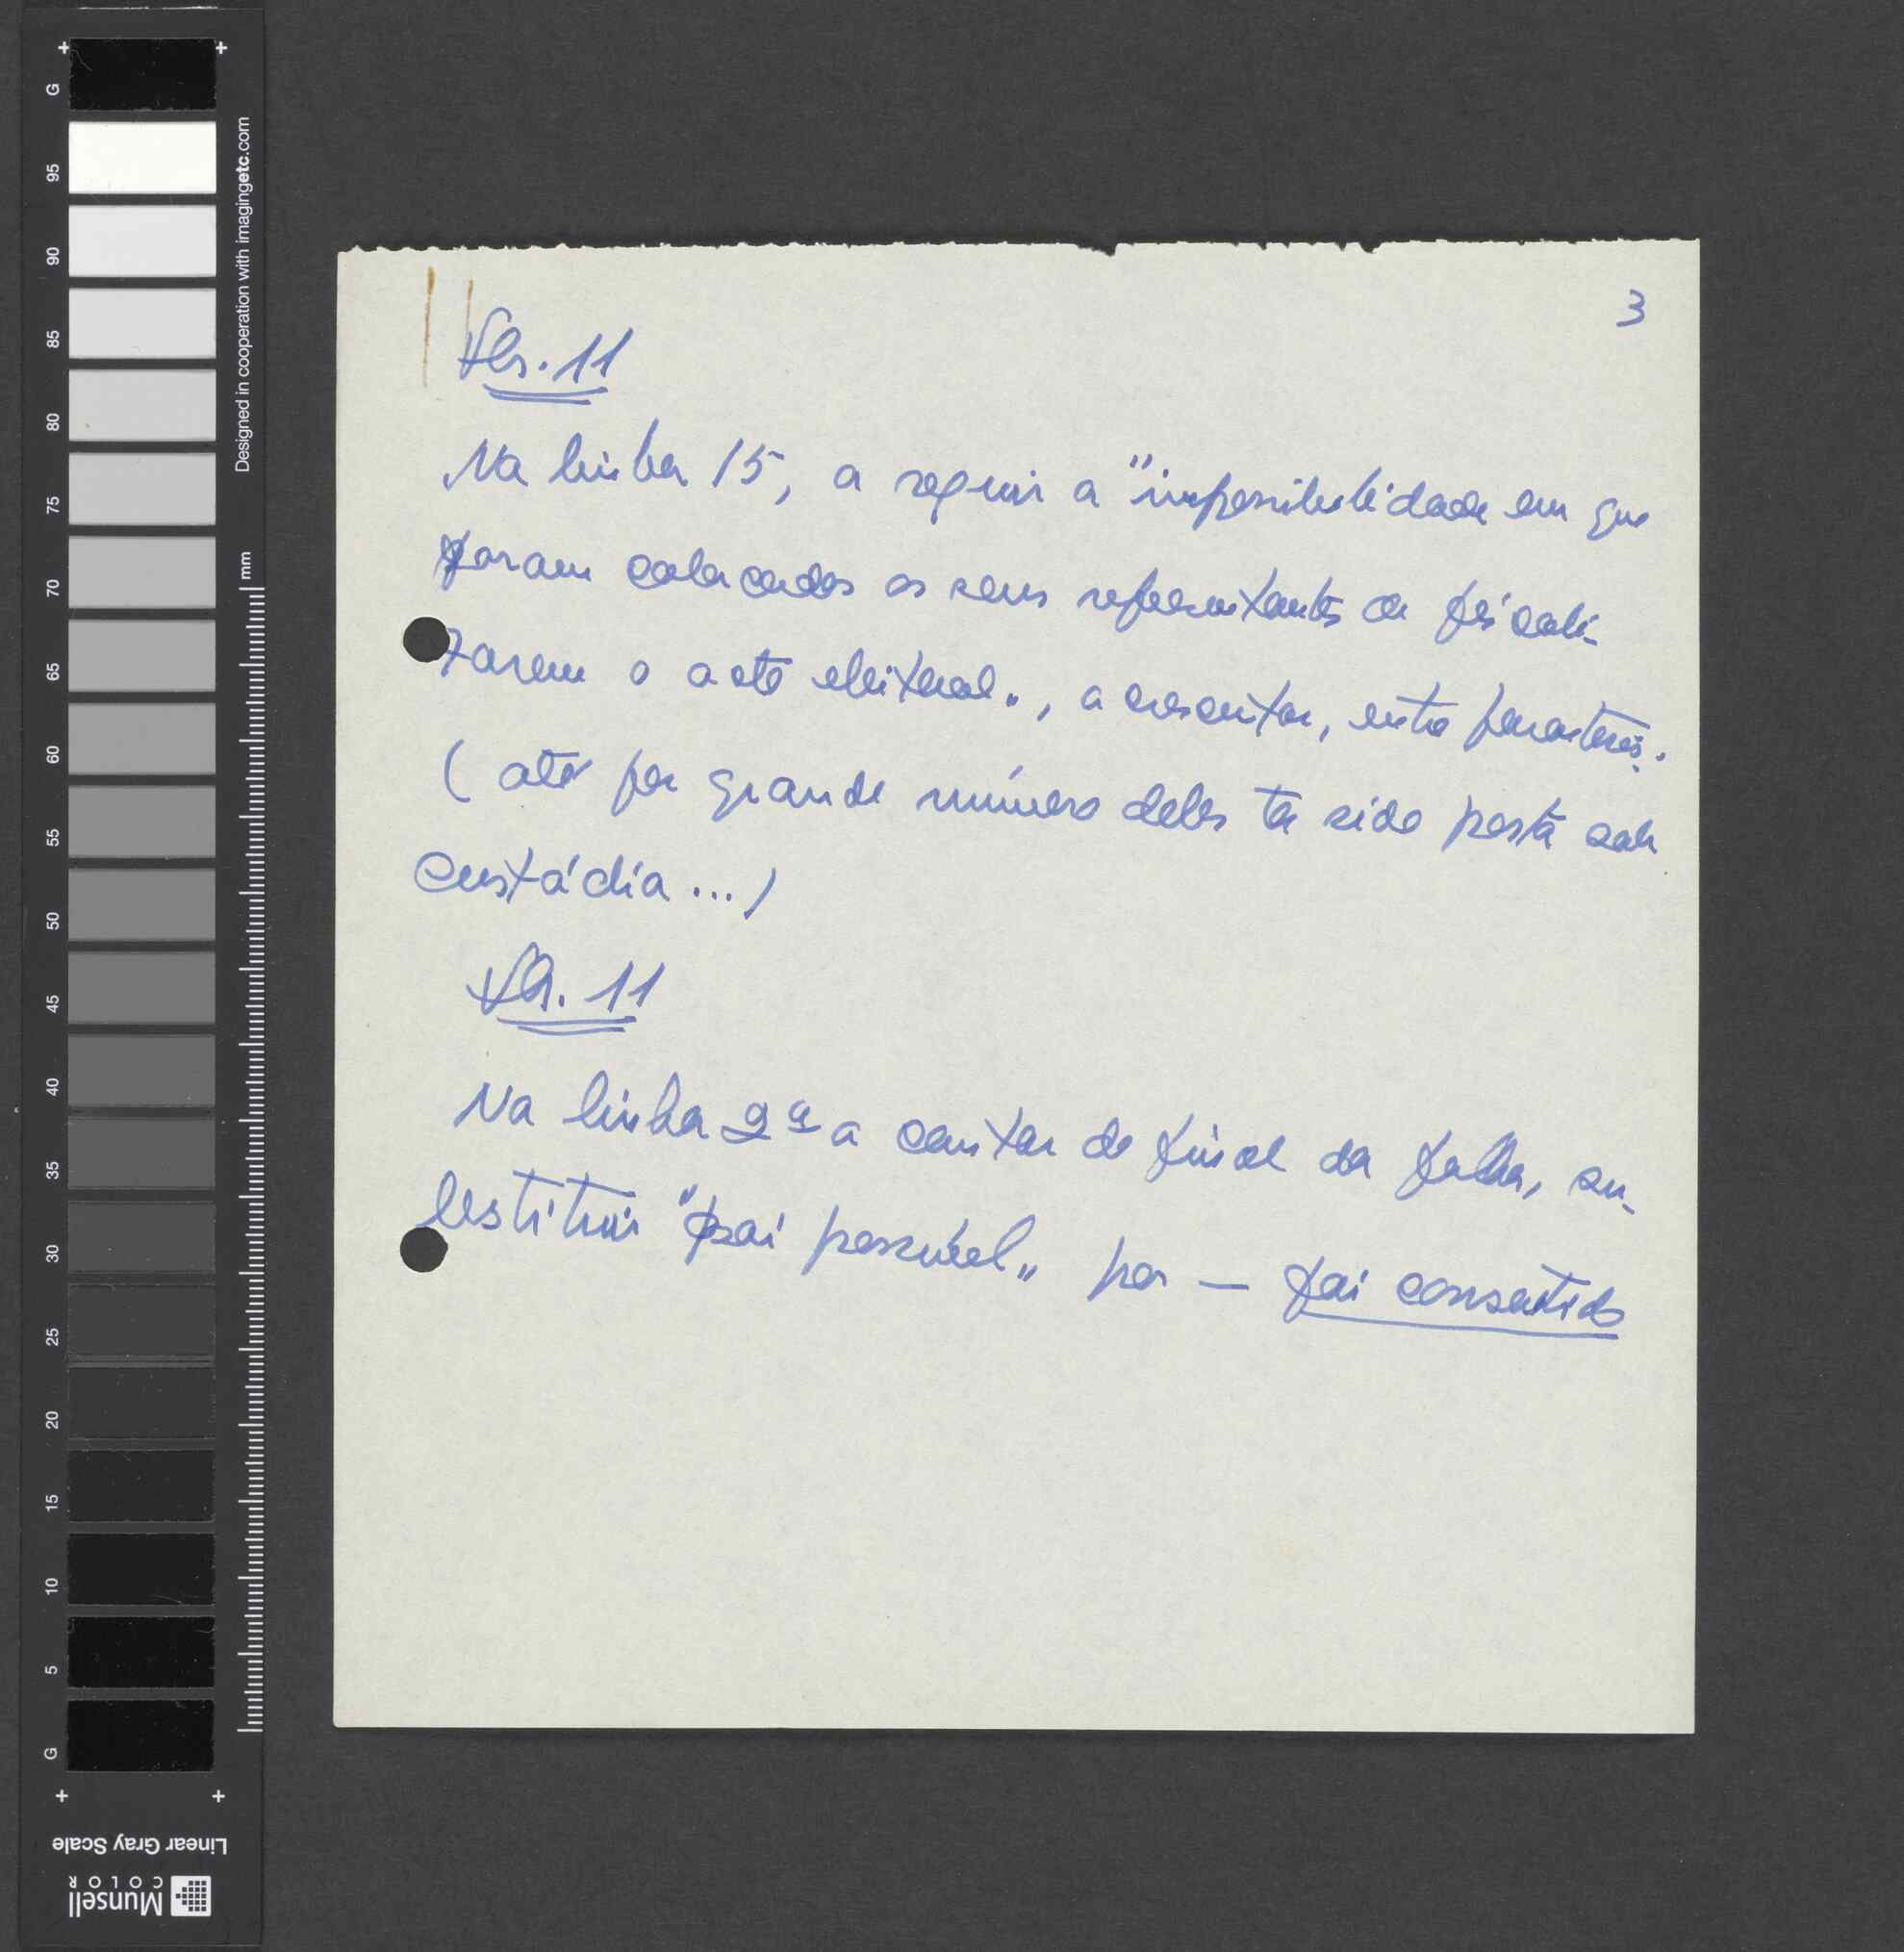 3
Fls. 11
Na linha 15, a seguir a "impossibilidade em que
foram colocados os seus representantes de fiscali-
zarem o acto eleitoral", acrescentar, entre parentesis:
(até por grande número deles ter sido posto sob
custódia...)
Fls. 11
Na linha 2ª a contar do final da folha, su-
bstituir "foi possível" por — foi consentido
G
95
90
85
80
75
70
65
60
55
50
45
40
35
30
25
20
15
10
5
G
Designed in cooperation with imagingetc.com
mm
Linear Gray Scale
Munsell
COLOR